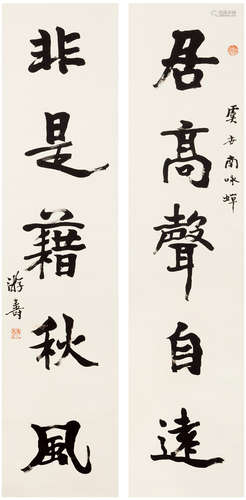 居高聲自遠
虞世南咏蝉
非是藉秋風
游壽